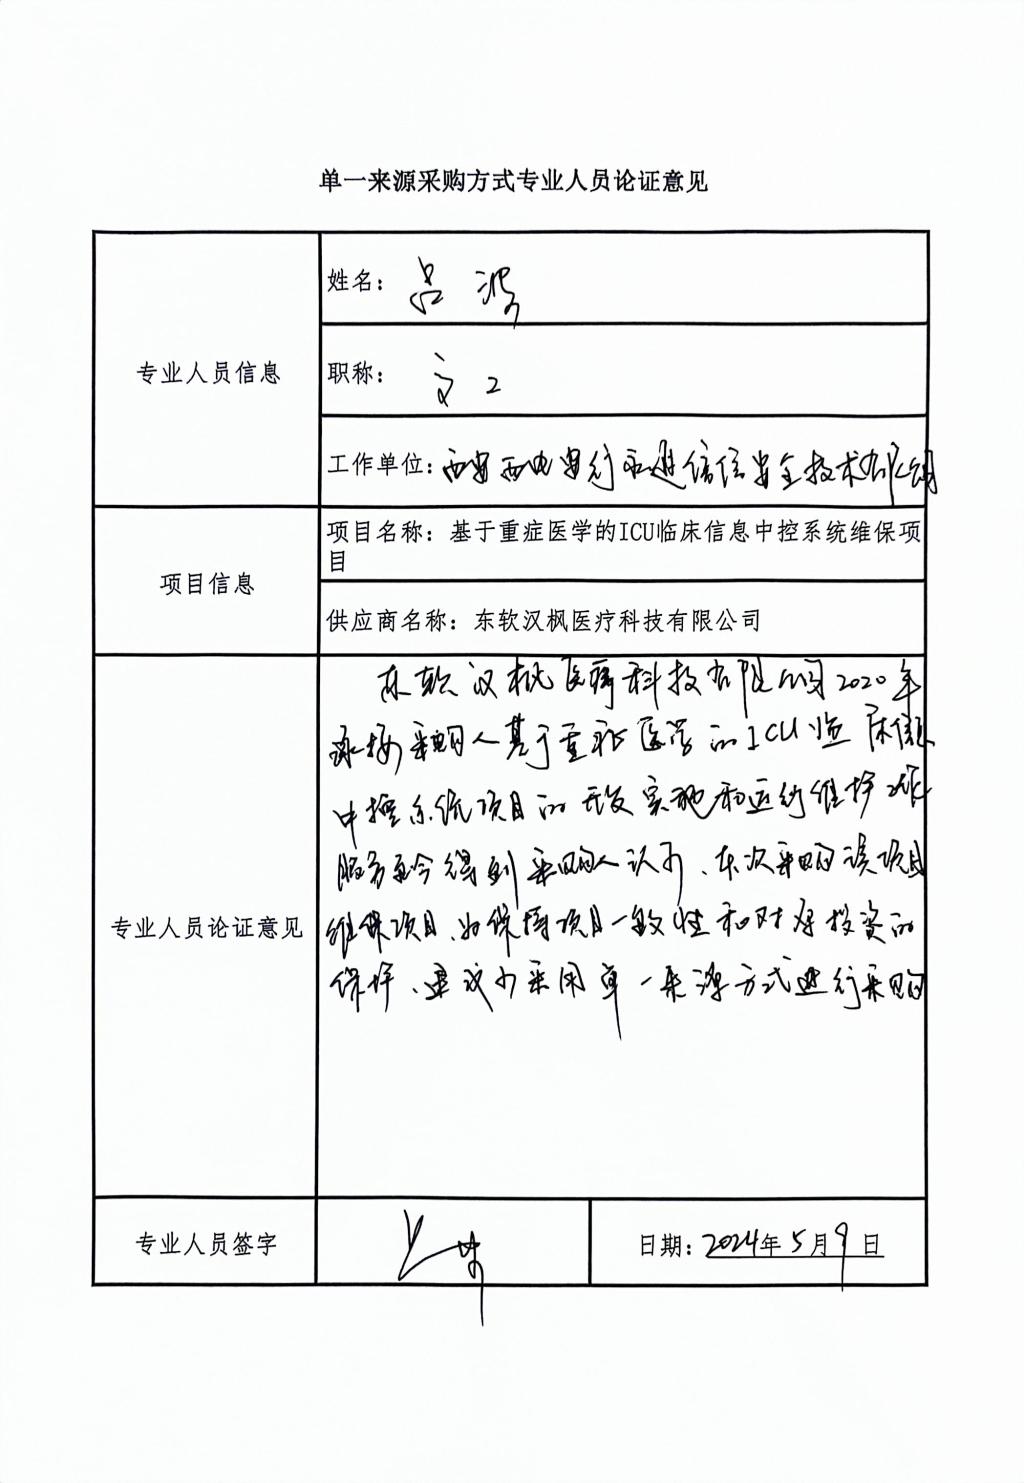 单一来源采购方式专业人员论证意见
专业人员信息
姓名：吕波
职称：高工
工作单位：西安西电安行通信信息安全技术有限公司
项目信息
项目名称：基于重症医学的ICU临床信息中控系统维保项
目
供应商名称：东软汉枫医疗科技有限公司
专业人员论证意见
东软汉枫医疗科技有限公司2020年
承接采购人基于重症医学的ICU临床信息
中控系统项目的开发实施和运行维护工作
服务至今得到采购人认可、本次采购该项目
维保项目、为保持项目一致性和对原投资的
保护、建议可采用单一来源方式进行采购
专业人员签字
日期：2024年5月9日